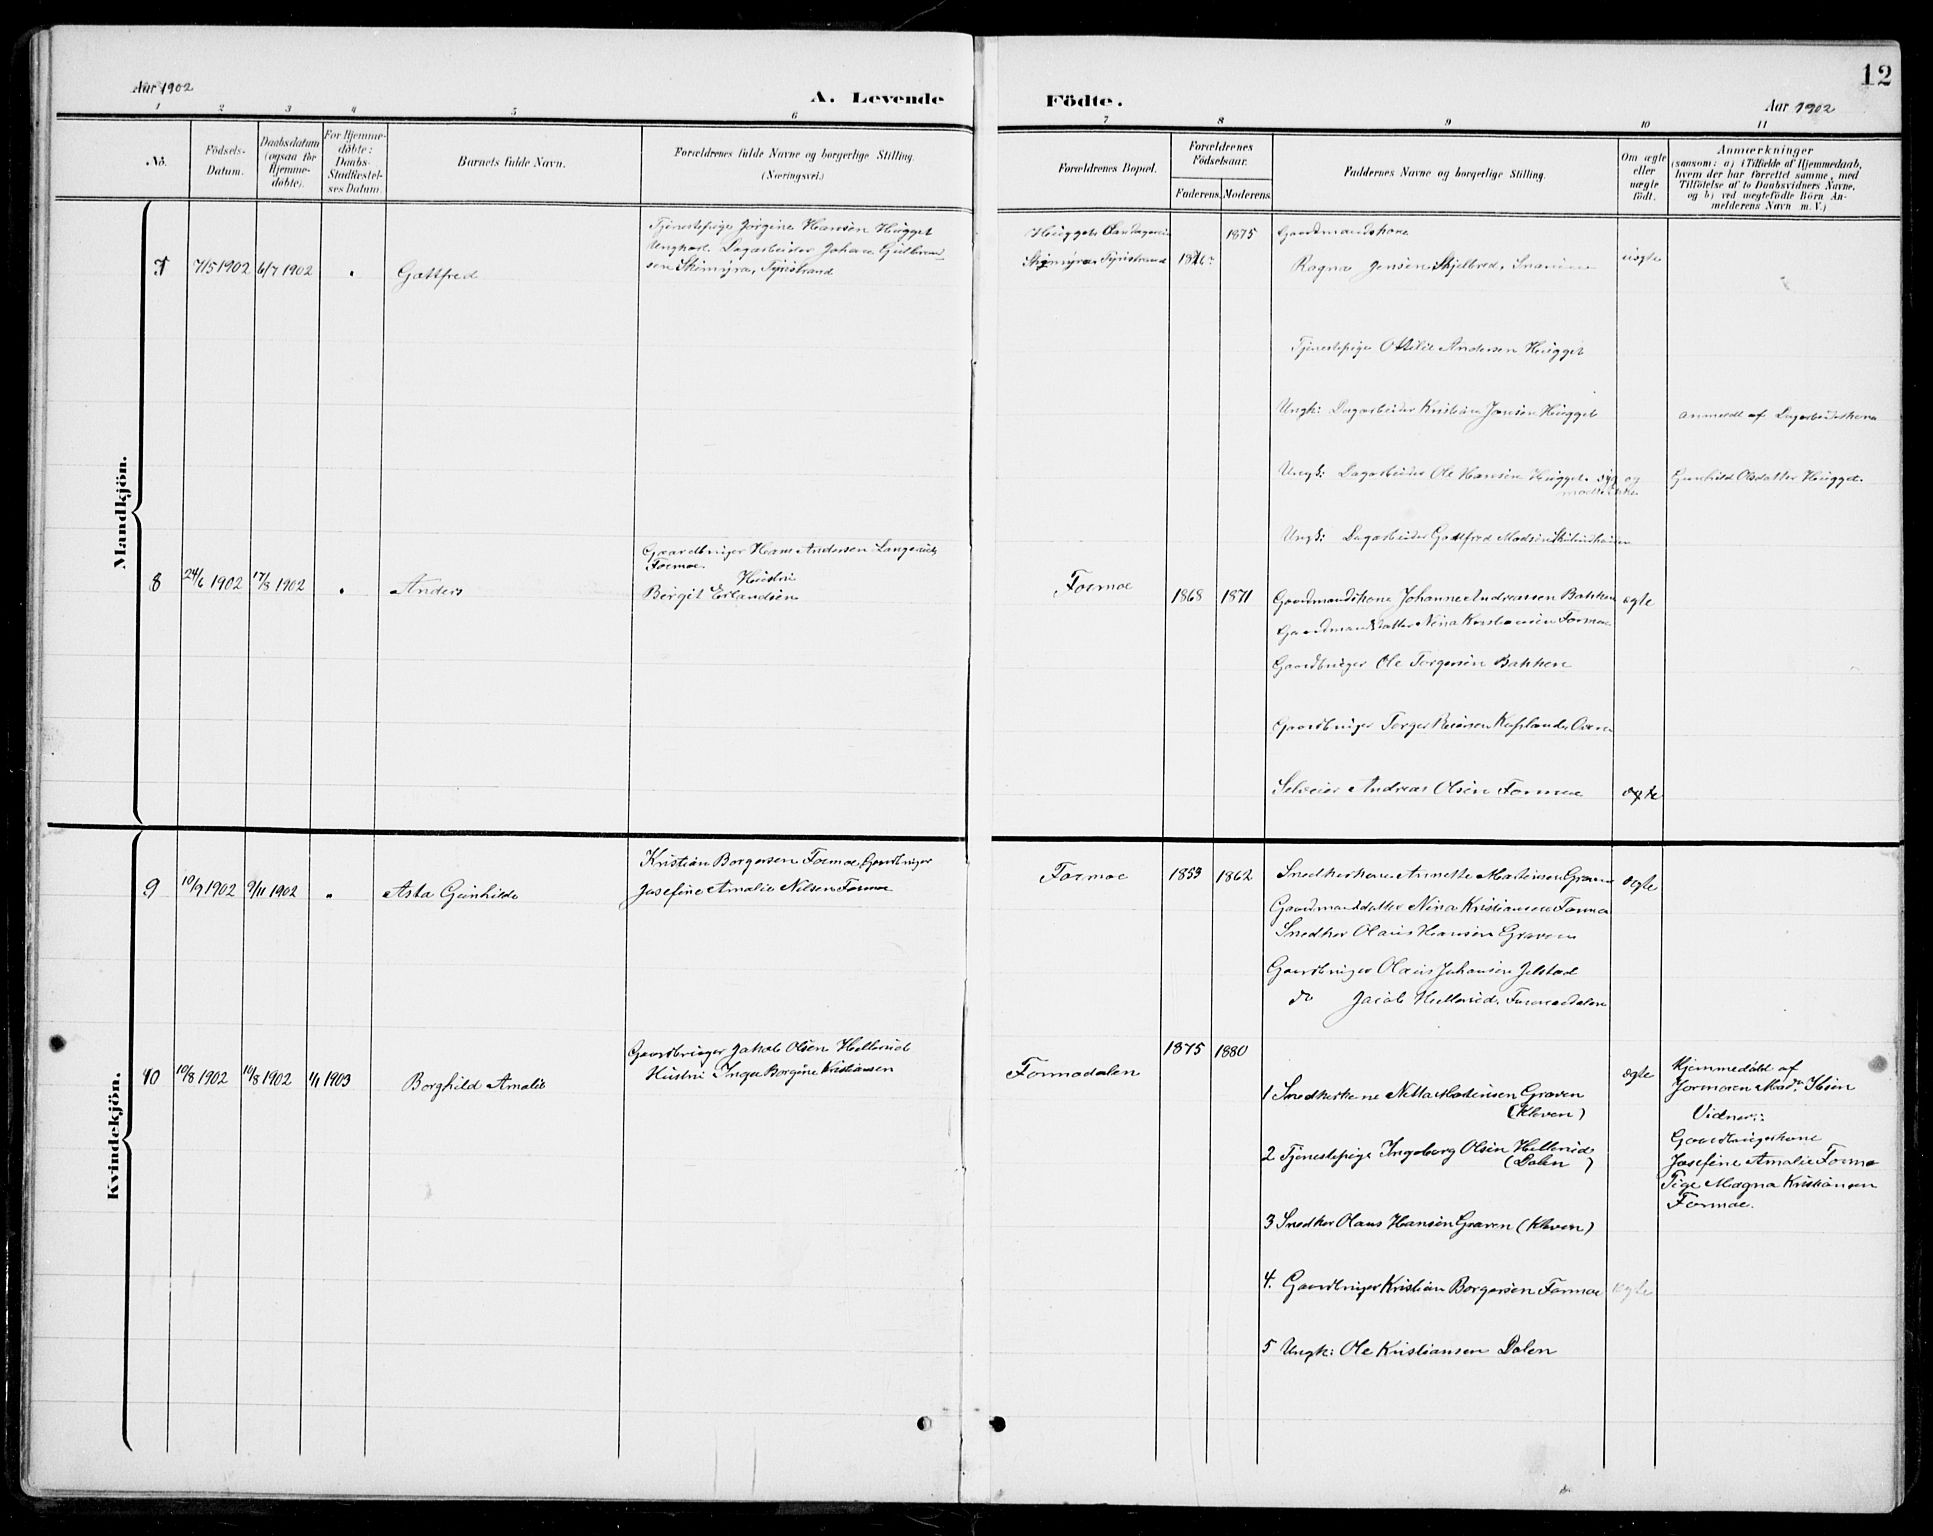 12
Aar 1902
A. Levende
Födte.
Aar 1902
1 2 3 4 5 6 7 8 9 10 11
No.
Födsels-
Datum.
Daabsdatum
(ogsaa for
Hjemme-
döbte).
For Hjemme-
döbte:
Daabs-
Stadfæstel-
ses Datum.
Barnets fulde Navn.
Forældrenes fulde Navne og borgerlige Stilling.
(Næringsvei.)
Forældrenes Bopæl.
Forældrenes
Födselsaar.
Faderens. Moderens.
Faddernes Navne og borgerlige Stilling.
Om ægte
eller
uægte
födt.
Anmærkninger
(saasom: a) i Tilfælde af Hjemmedaab,
hvem der har forrettet samme, med
Tilföielse af to Daabsvidners Navne,
og b) ved uægtefödte Börn An-
melderens Navn m. V.)
Mandkjön.
7 7/5 1902 6/7 1902 Gottfred
Tjenestepige Jørgine Hansen Hugget
Ungkarl Dagarbeider Johan Gulbrand-
sen Skimyra, Tyristrand
Hugget
Skimyra, Tyristrand
1875
Gaardmandskone
Ragna Jensen Skjelbred, Snarum
uægte
Tjenestepige Ottilie Andersen Hugget
Ungk: Dagarbeider Kristian Jensen Hugget
anmeldt af Dagarbeiderkone
Ungk: Dagarbeider Ole Hansen Hugget. og
Gunhild Olsdatter Hugget.
Ungk: Dagarbeider Gottfred Madsen
8 24/6 1902 17/8 1902 Anders
Gaardbruger Hans Andersen Langerud,
Formoe.
Hustru
Birgit Erlandsen
Formoe
1868 1871
Gaardmandskone Johanne Andreassen Bakken
ægte
Gaardmandsdatter Nina Kristiansen Formoe
Gaardbruger Ole Torgersen Bakken
Gaardbruger Torger
Selveier Andreas Olsen Formoe
ægte
Kvindekjön.
9 10/9 1902 9/11 1902 " Asta Gunhilde
Kristian Borgersen Formoe, Gaardbruger
Josefine Amalie Nilsen Formoe
Formoe
1853 1862
Snedkerkone Annette Martinsen Graven
ægte
Gaardmandsdatter Nina Kristiansen Formoe
Snedker Olaus Hansen Graven
Gaardbruger Olaus Johansen Jelstad
do Jacob Hellerud, Formoedalen
10 10/8 1902 10/8 1902 1/1 1903 Borghild Amalie
Gaardbruger Jakob Olsen Hellerud
Hustru Inga Borgine Kristiansen
Formodalen
1875 1880
ægte
1 Snedkerkone Netta Martinsen Graven
(Kleven)
2 Tjenestepige Ingeborg Olsen Hellerud
(Dalen)
3 Snedker Olaus Hansen Graven (Kleven)
4. Gaardbruger Kristian Borgersen Formoe
ægte
5 Ungk: Ole Kristiansen Dalen
Hjemmedøbt af
Jormoren Mad. Ibsen
Vidner:
Gaardbrugerkone
Josefine Amalie Formo
Pige Magna Kristiansen
Formoe.